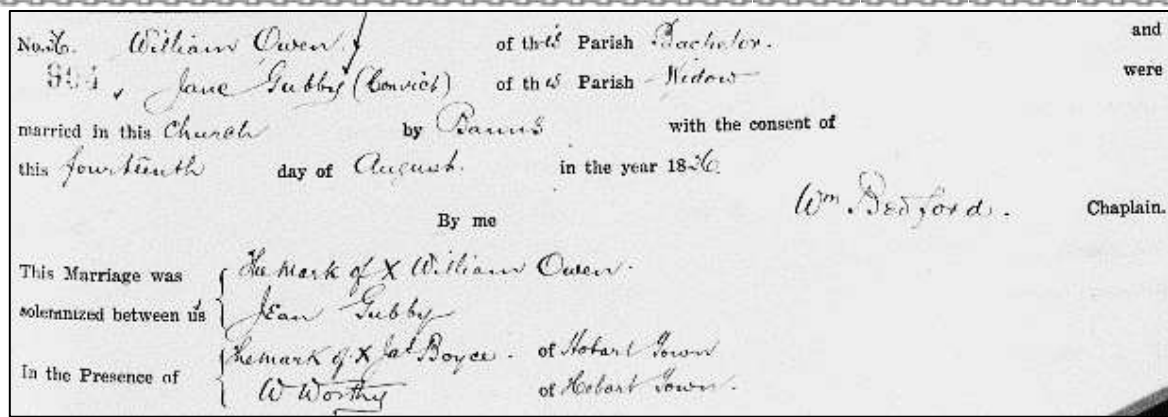 No. 36. William Owen of this Parish Bachelor. and
894 Jane Gubby (Convict) of this Parish Widow were
married in this Church by Banns with the consent of
this fourteenth day of August. in the year 1826.
Wm Bedford. Chaplain.
By me
This Marriage was The Mark of X William Owen.
solemnized between us Jean Gubby
In the Presence of The mark of X Jas Boyce. of Hobart Town
W Worthy of Hobart Town.